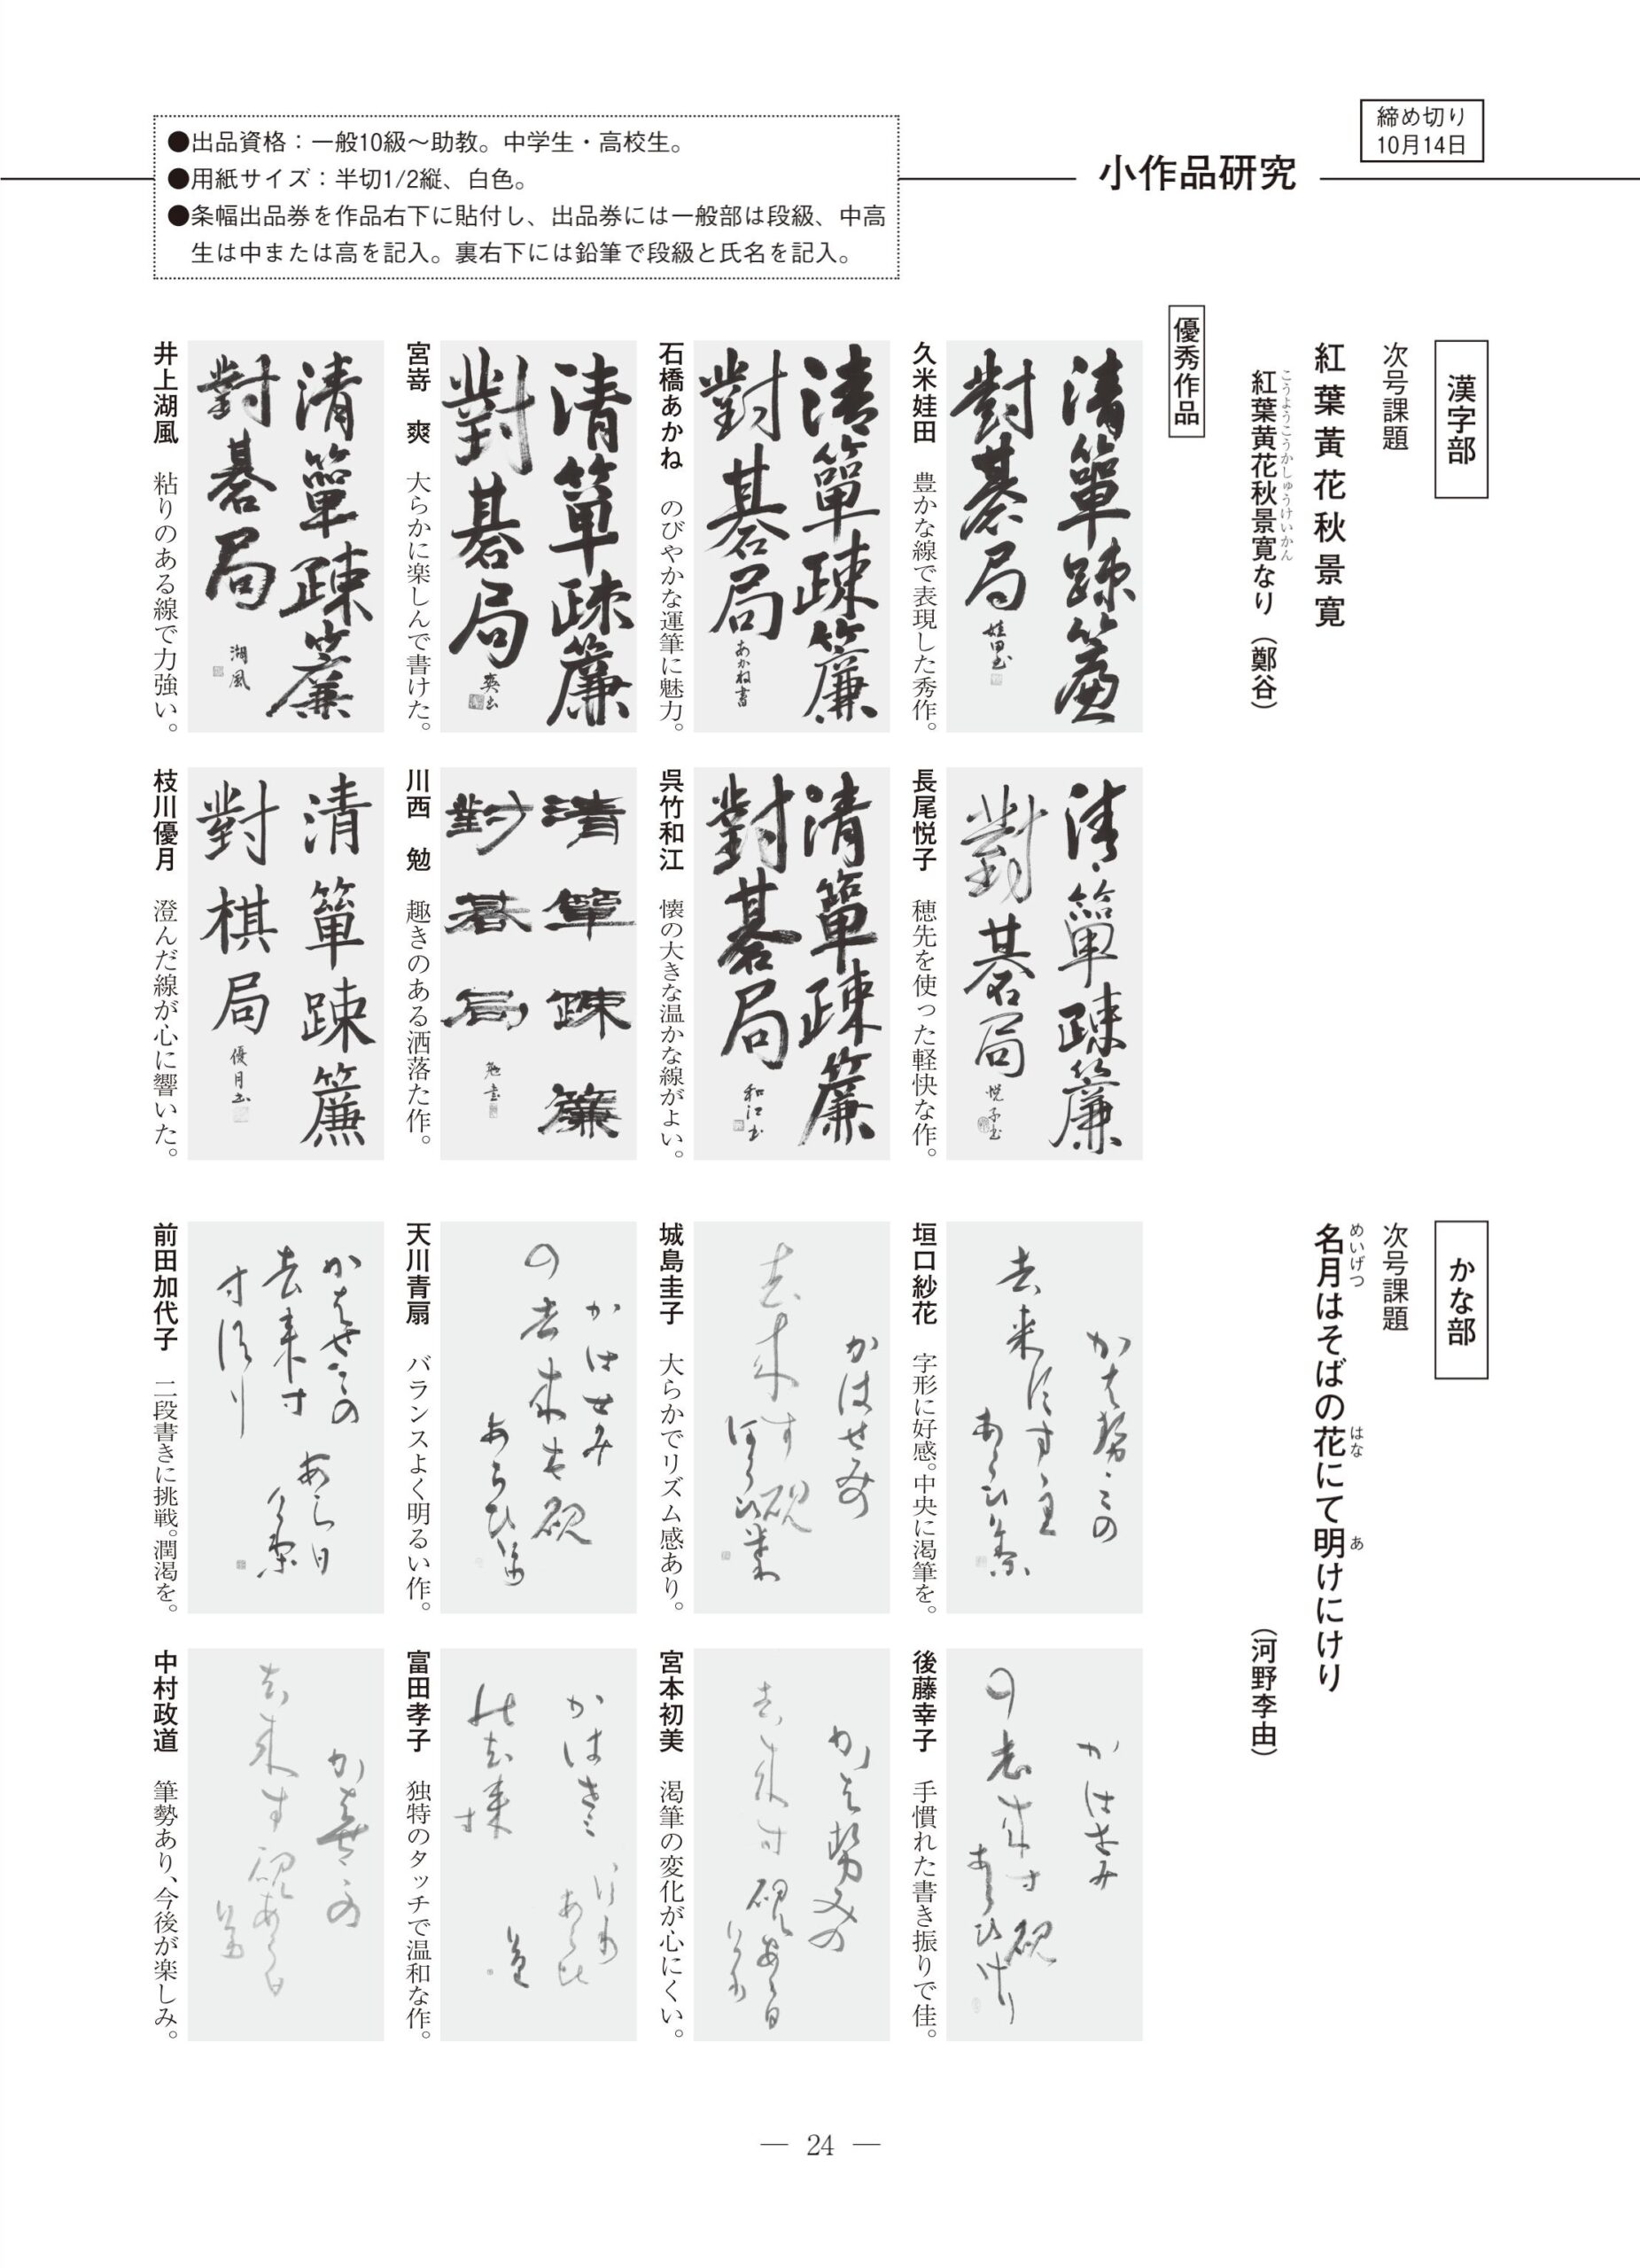 締め切り
10月14日
小作品研究
●出品資格：一般10級～助教。中学生・高校生。
●用紙サイズ：半切1/2縦、白色。
●条幅出品券を作品右下に貼付し、出品券には一般部は段級、中高
生は中または高を記入。裏右下には鉛筆で段級と氏名を記入。
漢字部
次号課題
紅葉黃花秋景寛
こうようこうかしゅうけいかん
紅葉黄花秋景寛なり（鄭谷）
優秀作品
清簟疎簾
對碁局
娃田書
久米娃田　豊かな線で表現した秀作。
清簟疎簾
對碁局
あかね書
石橋あかね　のびやかな運筆に魅力。
清簟疎簾
對碁局
爽書
宮嵜　爽　大らかに楽しんで書けた。
清簟疎簾
對碁局
湖風
井上湖風　粘りのある線で力強い。
清簟疎簾
對碁局
悦子書
長尾悦子　穂先を使った軽快な作。
清簟疎簾
對碁局
和江書
呉竹和江　懐の大きな温かな線がよい。
清簟疎簾
對碁局
勉書
川西　勉　趣きのある洒落た作。
清簟疎簾
對棋局
優月書
枝川優月　澄んだ線が心に響いた。
かな部
次号課題
めいげつ　はな　あ
名月はそばの花にて明けにけり
（河野李由）
垣口紗花　字形に好感。中央に渇筆を。
かはせみの
城島圭子　大らかでリズム感あり。
かはせみ
天川青扇　バランスよく明るい作。
前田加代子　二段書きに挑戦。潤渇を。
後藤幸子　手慣れた書き振りで佳。
宮本初美　渇筆の変化が心にくい。
富田孝子　独特のタッチで温和な作。
中村政道　筆勢あり、今後が楽しみ。
— 24 —